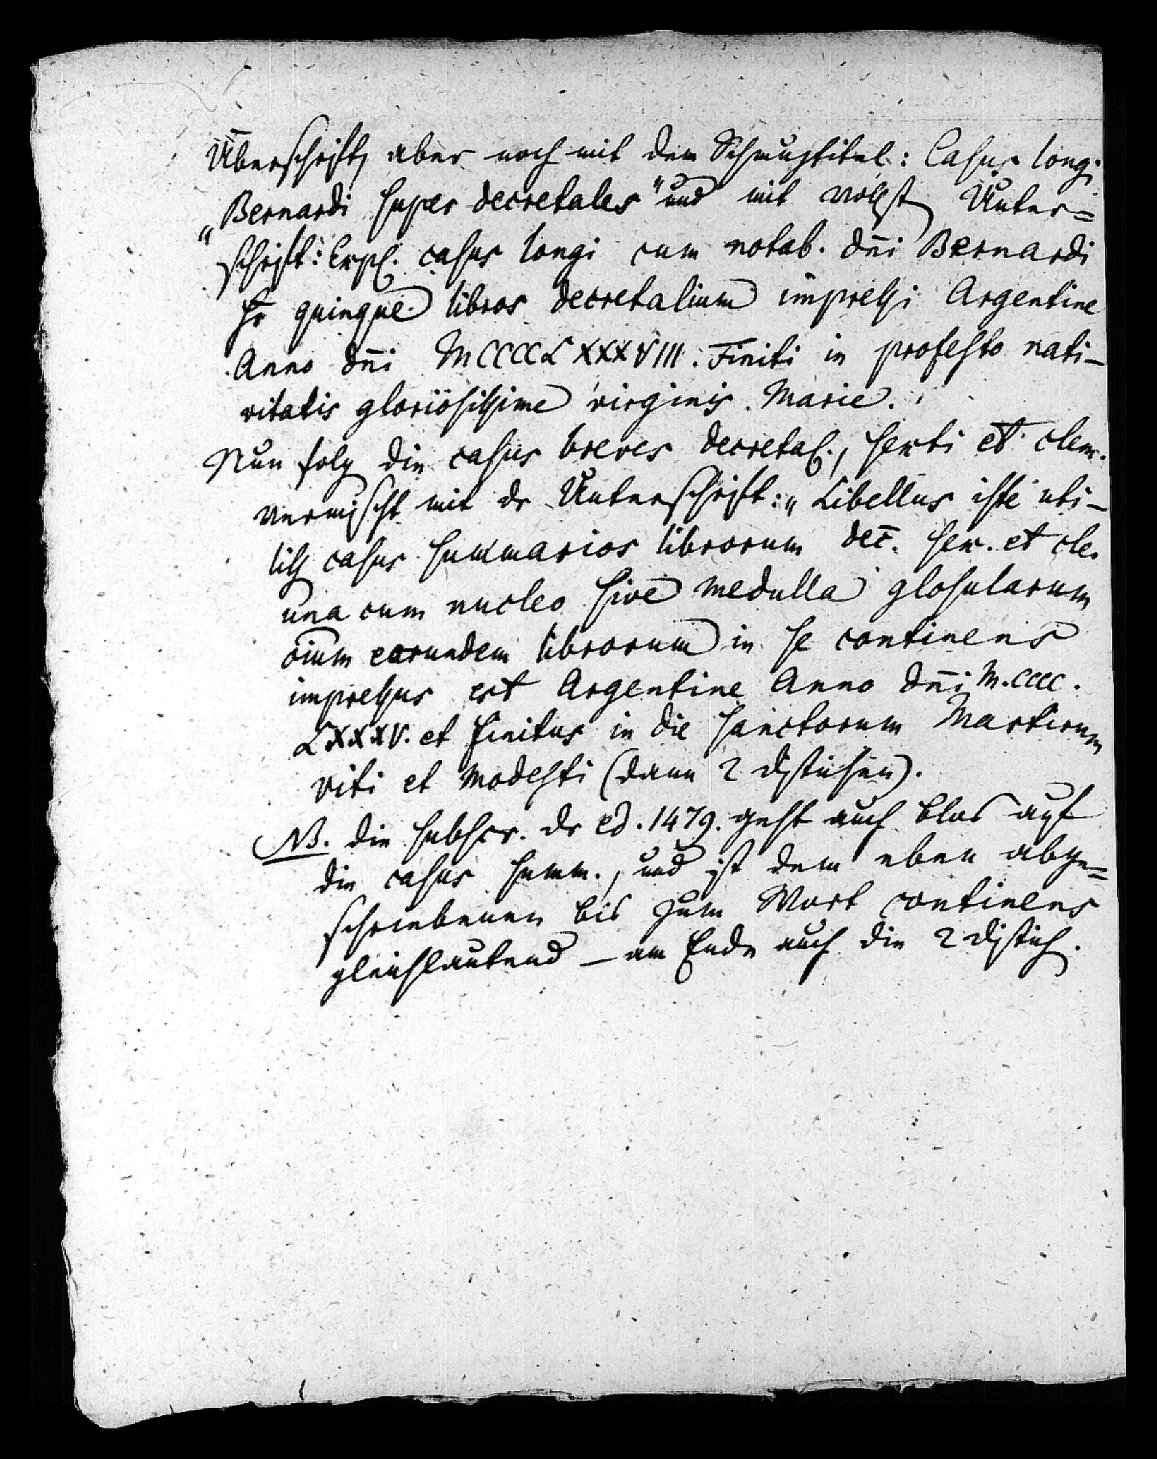 Überschrift, aber noch mit dem Schmuztitel: Casus longi
„Bernardi super decretales" und mit vollst. Unter=
schrift: Expl. casus longi cum notab. dn̄i Bernardi
sr̄ quinque libros decretalium impressi Argentine
Anno dn̄i MCCCCLXXXVIII. Finiti in profesto nati–
vitatis gloriosissime virginis Marie.
Nun folg. die casus breves decretal., sexti et clem.
vermischt mit der Unterschrift: „Libellus iste uti–
lis casus summarios librorum dec̄. sex. et cle.
una cum nucleo sive medulla glosularum
oīum earundem librorum in se continens
impressus est Argentine Anno dn̄i M.CCCC.
LXXXV. et finitus in die sanctorum Martirum
viti et Modesti (dann 2 Distichen).
NB. die subscr. der ed. 1479. geht auch blos auf
die casus summ., und ist dem eben abge=
schriebenen bis zum Wort continens
gleichlautend – am Ende auch die 2 Distich.